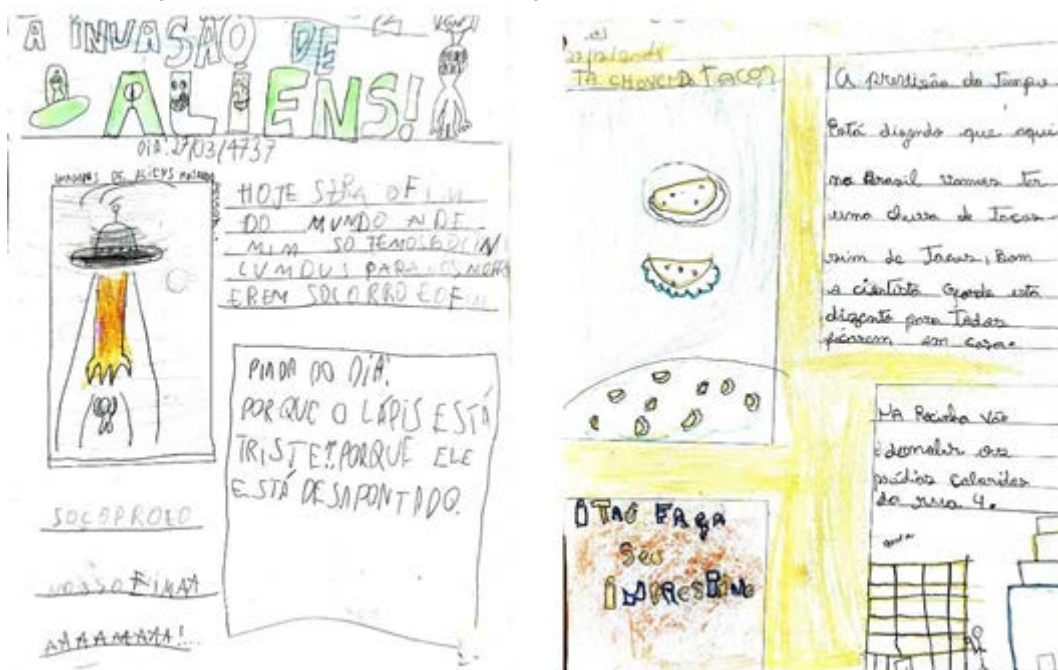 A INVASÃO DE
ALIENS!
DIA: 27/03/4737
IMAGENS DE ALIENS
HOJE SERA O FIM
DO MUNDO
SO TEMOS
PARA
SOCORRO E O FIM
PIADA DO DIA:
PORQUE O LÁPIS ESTÁ
TRISTE?! PORQUE ELE
ESTÁ DESAPONTADO.
NOSSO FIMAA
AAAAAAAA!...
TA CHOVENDO TACO?
A previsão do tempo
Está dizendo que aqui
no Brasil vamos ter
uma chuva de Tacos
sim de Tacos, Bom
o cientista esta
dizento para Todos
ficarem em casa.
NA Rocinha vão
demolir os
prédios coloridos
da rua 4.
ITAÚ FAÇA
Seu